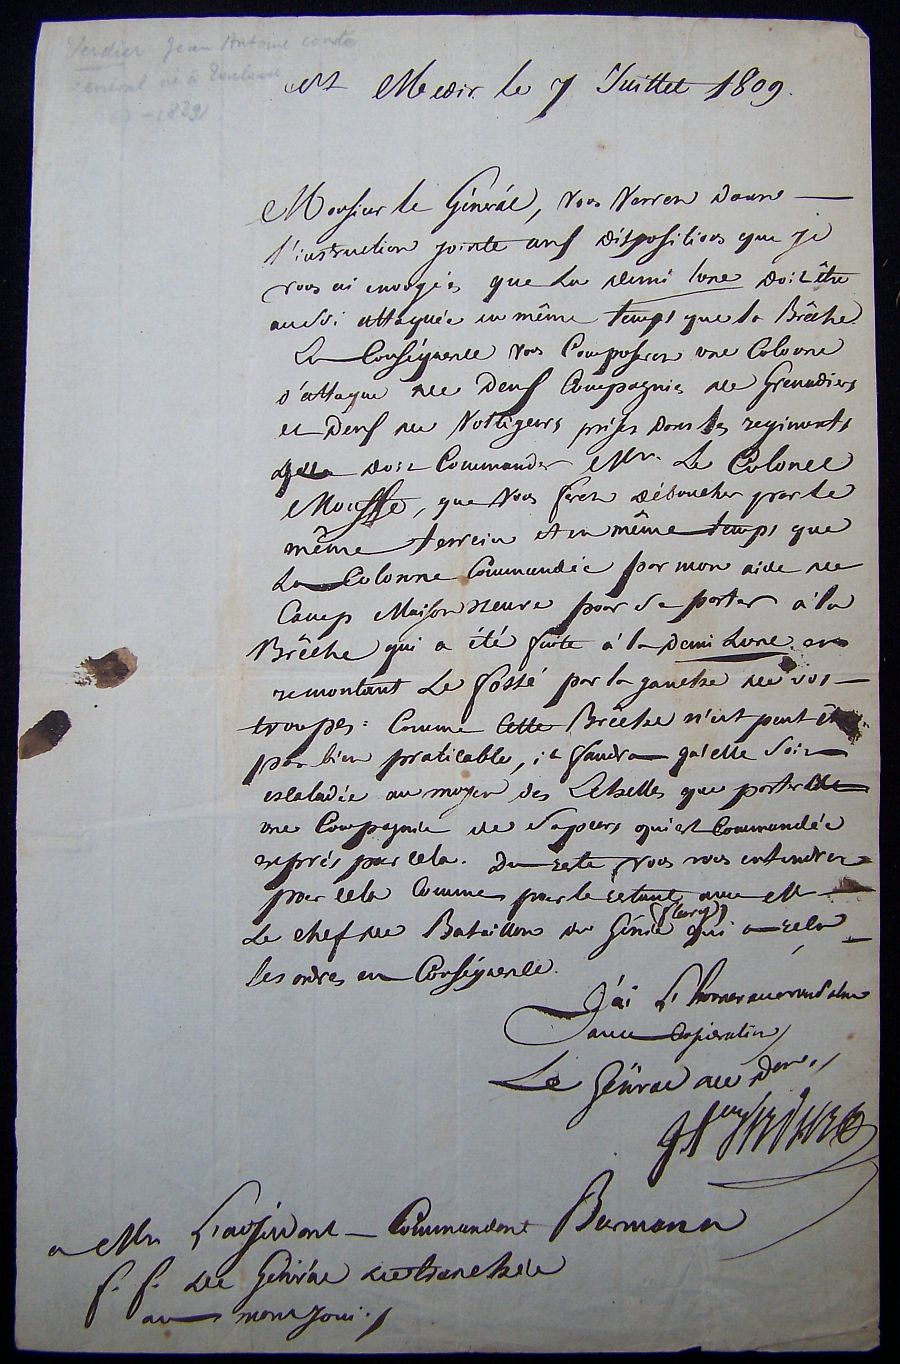 Verdier Jean Antoine comte
Général né à Toulouse
-1839
St Medir le 7 Juillet 1809.
Monsieur le Général, vous verrez dans
l'instruction jointe aux dispositions que je
vous ai envoyées que la demi lune doit être
aussi attaquée en même temps que la Brêche.
En Conséquence vous Composerez une Colonne
d'attaque de Deux Compagnies de Grenadiers
et Deux de Voltigeurs prises dans les regiments
doit Commander Mr. Le Colonel
Mouffe, que vous ferez déboucher par le
même terrein et en même temps que
La Colonne Commandée par mon aide de
Camp Maisonneuve pour se porter à la
Brêche qui a été faite à la Demi Lune en
remontant Le fossé par la gauche de vos
troupes: Comme Cette Brêche n'est peut être
pas bien praticable, il faudra qu'elle soit
escaladée au moyen des Echelles que portera
une Compagnie de Sapeurs qui est Commandée
exprès pour cela. Du reste vous vous entendrez
pour cela Comme pour le restant avec Mr
Le chef de Bataillon du Génie (fleury) qui a reçu
les ordres en Conséquence.
J'ai L'honneur de vous saluer
avec Considération
Le Général de Don.
Verdier
a Mr L'adjudant Commandant Bermann
f. f. de Général de tranchée
au mont joui.